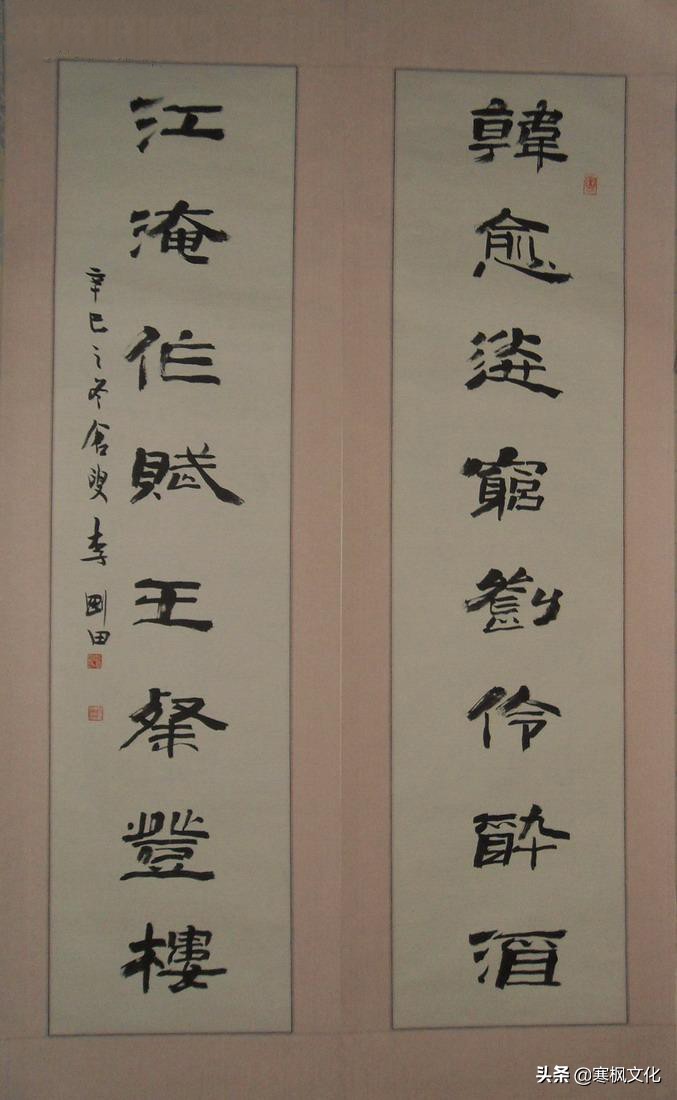 韓愈送窮劉伶酔酒
江淹作賦王粲登樓
辛巳之冬倉叟李剛田
头条 @寒枫文化